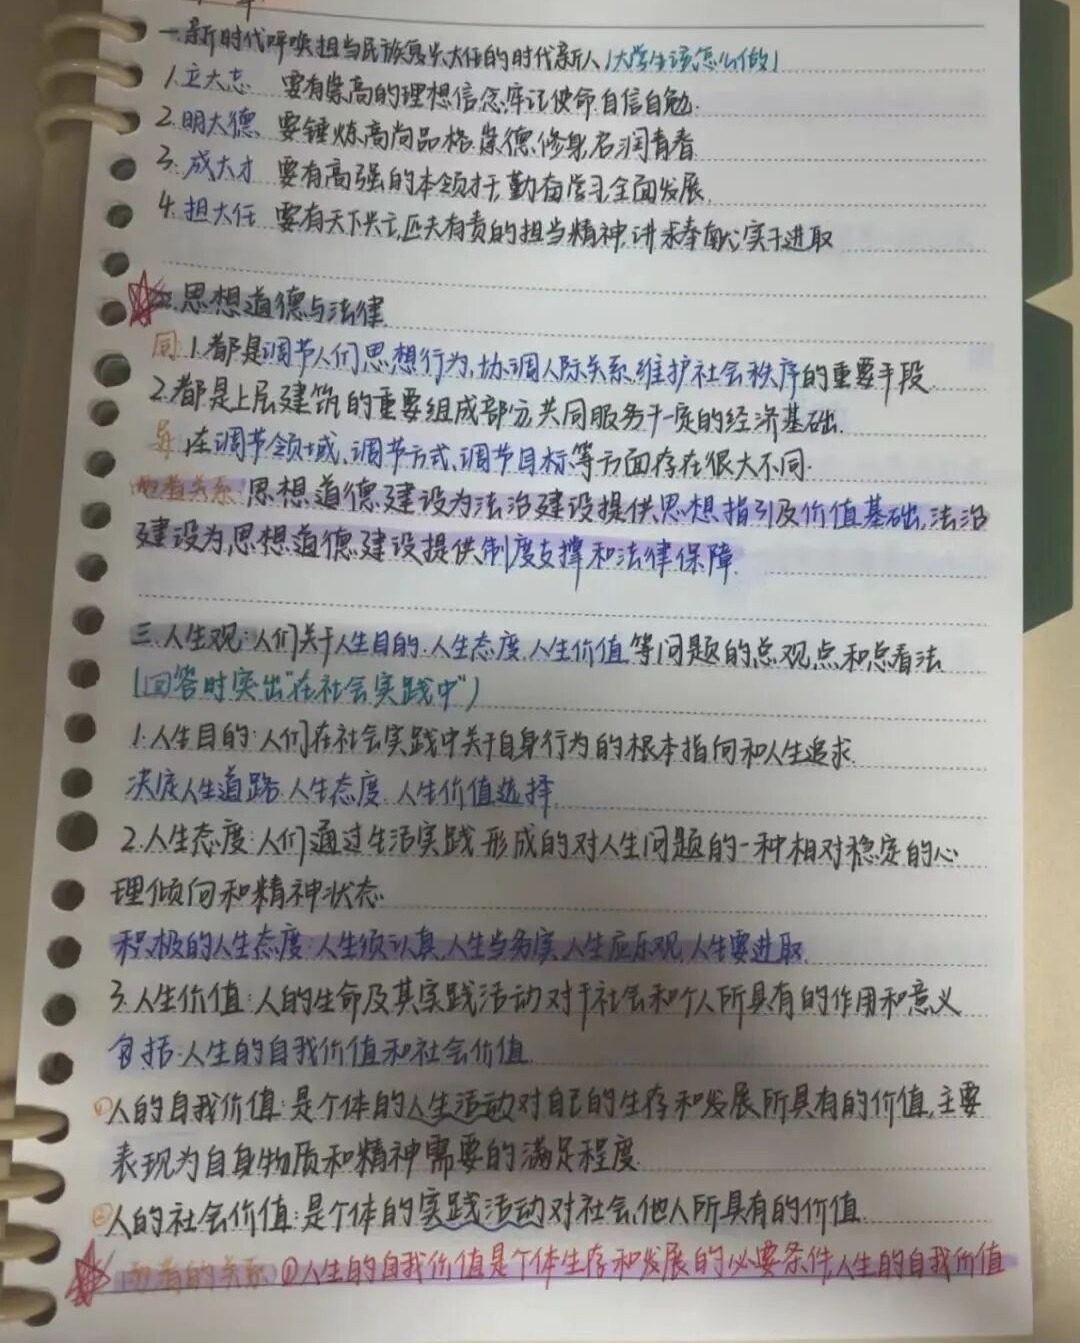 一.新时代呼唤担当民族复兴大任的时代新人(大学生该怎么做)
1.立大志 要有崇高的理想信念,牢记使命,自信自励.
2.明大德 要锤炼高尚品格,崇德修身,启润青春
3.成大才 要有高强的本领才干,勤奋学习,全面发展.
4.担大任 要有天下兴亡,匹夫有责的担当精神,讲求奉献,实干进取
二.思想道德与法律
同 1.都是调节人们思想行为,协调人际关系,维护社会秩序的重要手段
2.都是上层建筑的重要组成部分,共同服务于一定的经济基础.
异 在调节领域、调节方式、调节目标等方面存在很大不同.
两者关系:思想道德建设为法治建设提供思想指引及价值基础,法治
建设为思想道德建设提供制度支撑和法律保障.
三.人生观:人们关于人生目的.人生态度.人生价值等问题的总观点和总看法
(回答时突出"在社会实践中")
1.人生目的:人们在社会实践中关于自身行为的根本指向和人生追求.
决定人生道路.人生态度.人生价值选择
2.人生态度:人们通过生活实践形成的对人生问题的一种相对稳定的心
理倾向和精神状态.
积极的人生态度:人生须认真,人生当务实,人生应乐观,人生要进取.
3.人生价值:人的生命及其实践活动对于社会和个人所具有的作用和意义
包括:人生的自我价值和社会价值
①人的自我价值:是个体的人生活动对自己的生存和发展所具有的价值,主要
表现为自身物质和精神需要的满足程度.
②人的社会价值:是个体的实践活动对社会、他人所具有的价值.
两者的关系 ①人生的自我价值是个体生存和发展的必要条件,人生的自我价值